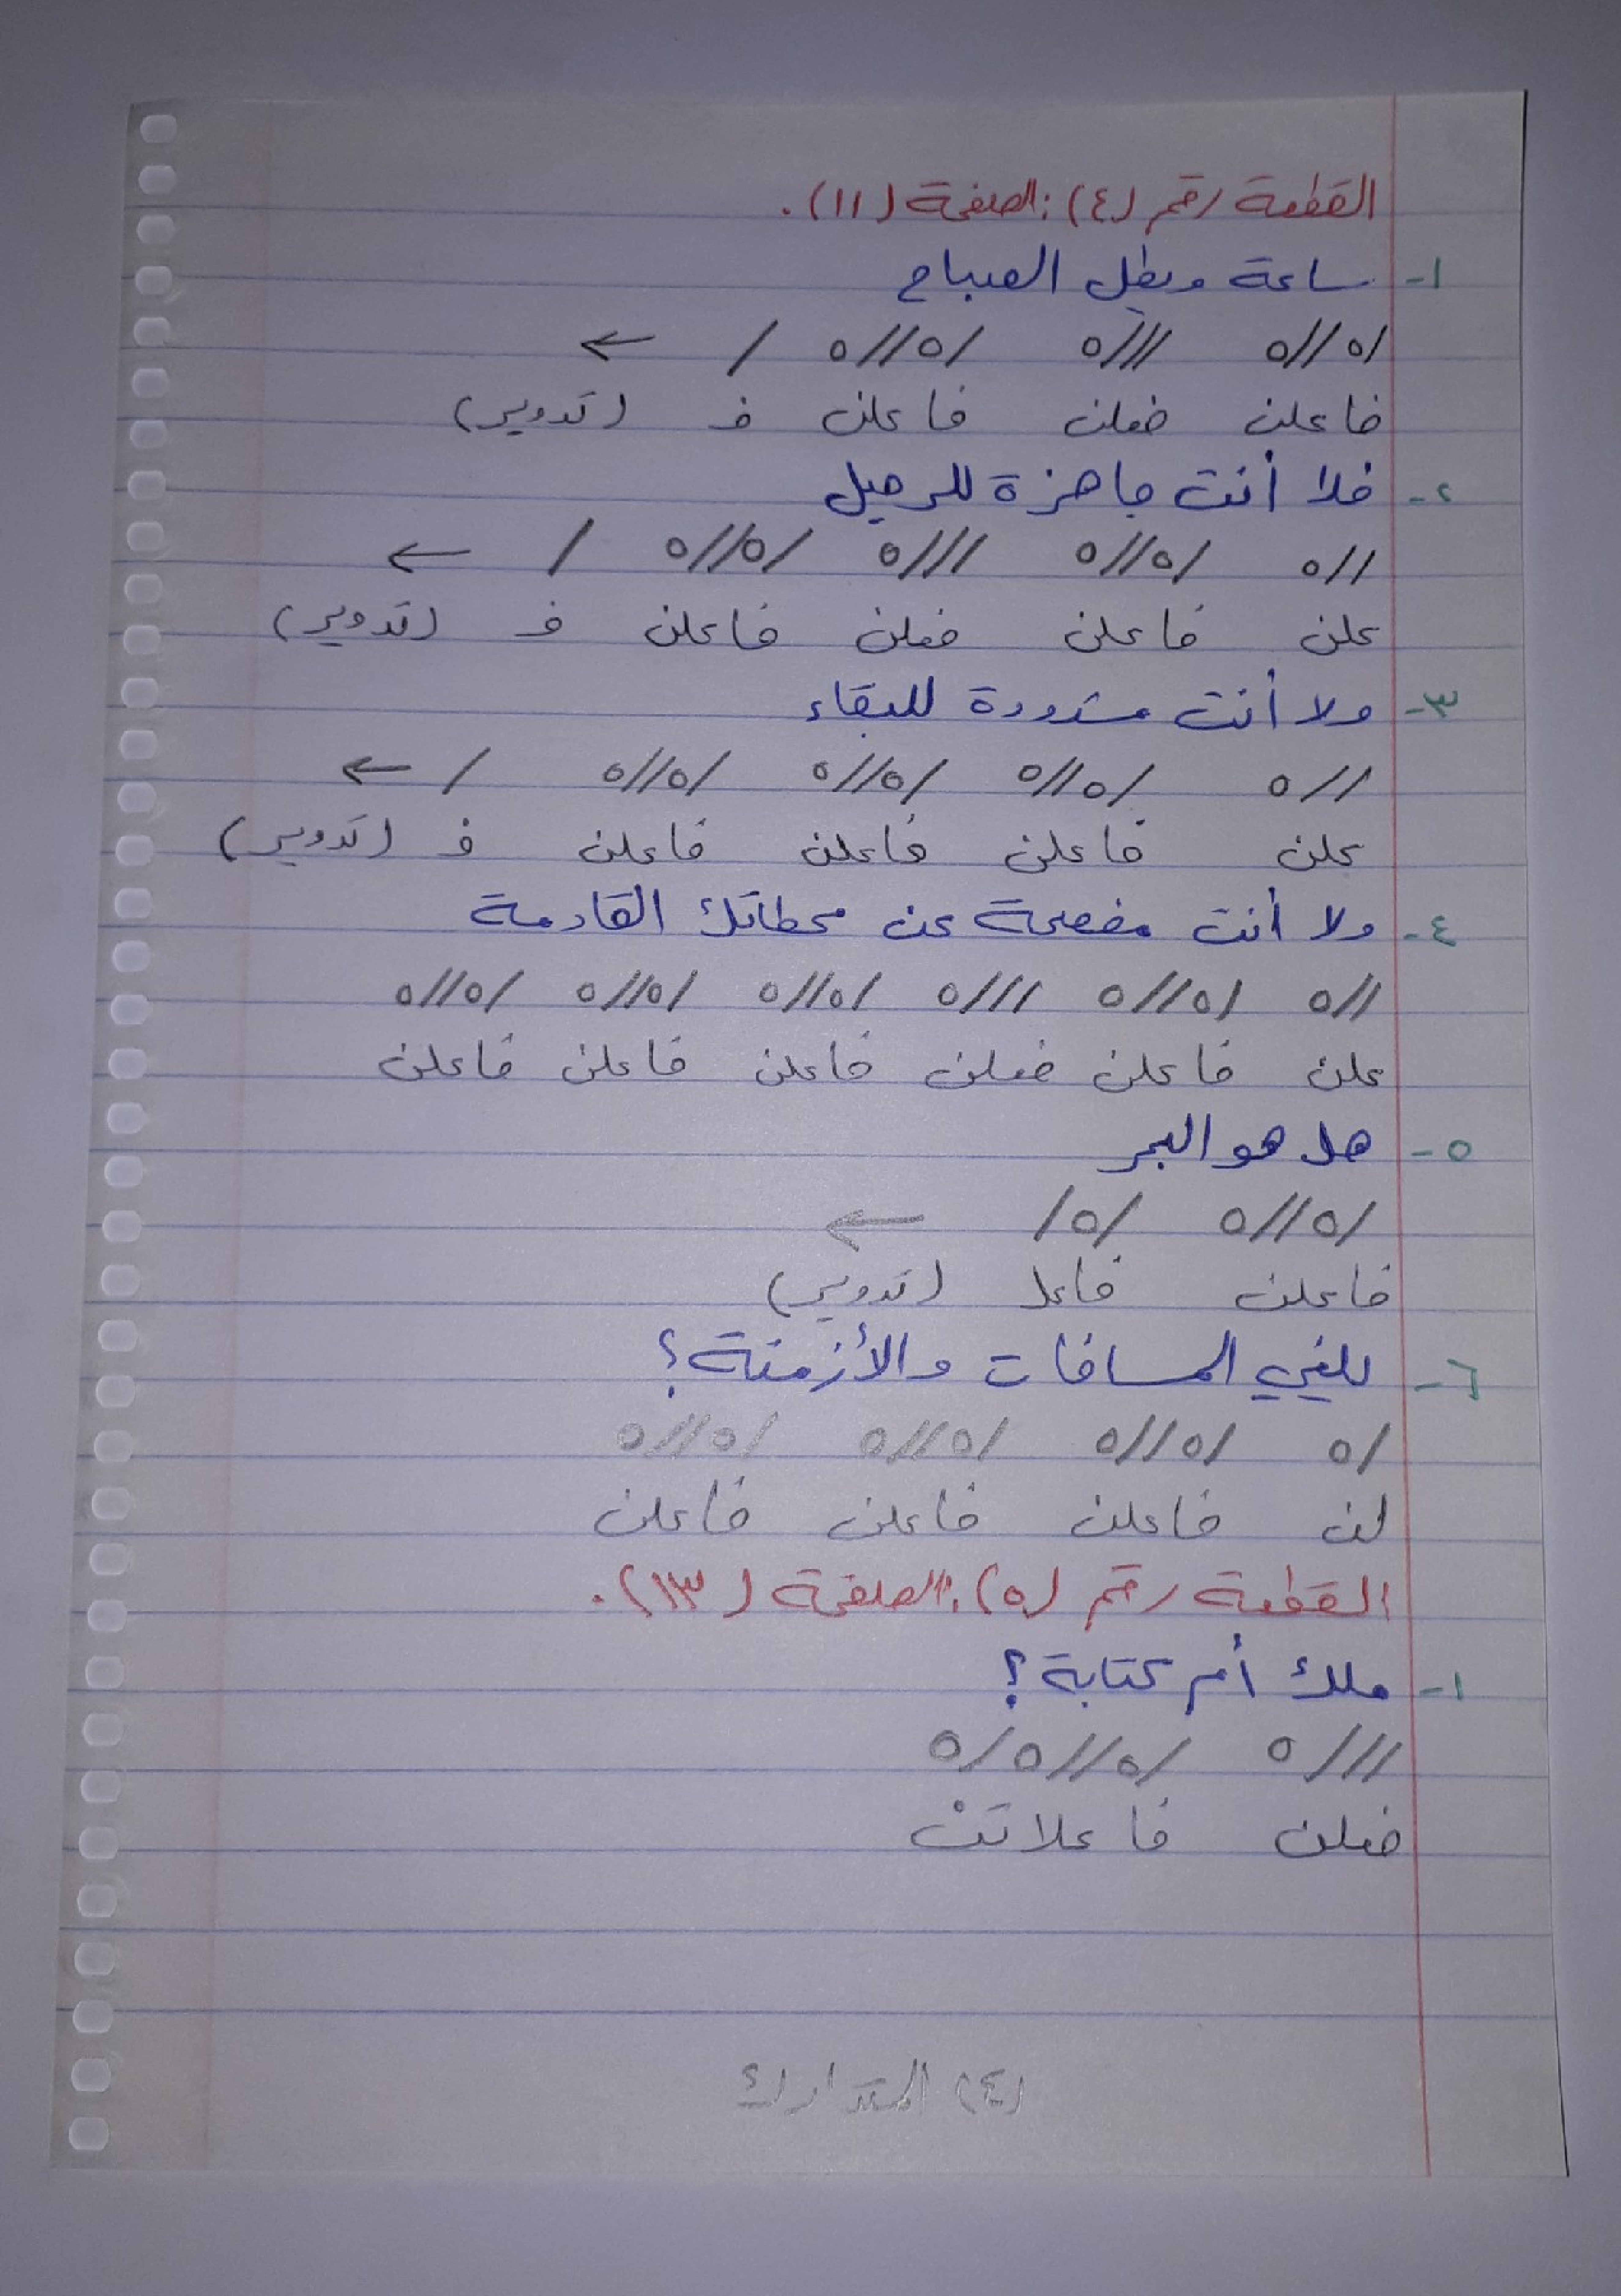 القطعة رقم (٤): الصفحة (١١).
١- ساعة ويطل الصباح
/٥//٥ ///٥ /٥//٥ / ←
فاعلن فعلن فاعلن ف (تدوير)
٢- فلا أنت جاهزة للرحيل
//٥ /٥//٥ ///٥ /٥//٥ / ←
علن فاعلن فعلن فاعلن ف (تدوير)
٣- ولا أنت مشدودة للبقاء
//٥ /٥//٥ /٥//٥ /٥//٥ / ←
علن فاعلن فاعلن فاعلن ف (تدوير)
٤- ولا أنت مفصحة عن محطاتك القادمة
//٥ /٥//٥ ///٥ /٥//٥ /٥//٥ /٥//٥
علن فاعلن فعلن فاعلن فاعلن فاعلن
٥- هل هو البحر
/٥//٥ /٥/ ←
فاعلن فاعل (تدوير)
٦- يلغي المسافات والأزمنة؟
/٥ /٥//٥ /٥//٥ /٥//٥
لن فاعلن فاعلن فاعلن
القطعة رقم (٥): الصفحة (١٣).
١- ملك أم كتابة؟
///٥ /٥//٥/٥
فعلن فاعلاتنْ
(٤) المتدارك